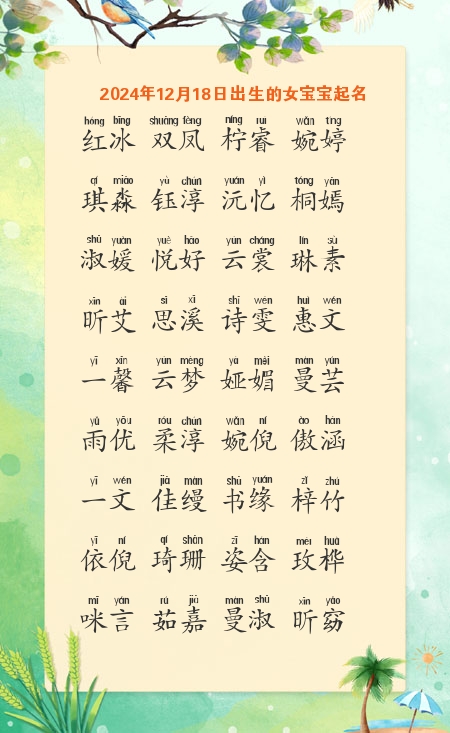 2024年12月18日出生的女宝宝起名
hóng bīng shuāng fèng níng ruì wǎn tíng
红冰 双凤 柠睿 婉婷
qí miǎo yù chún yuán yì tóng yān
琪淼 钰淳 沅忆 桐嫣
shū yuàn yuè hǎo yún cháng lín sù
淑媛 悦好 云裳 琳素
xīn ài sī xī shī wén huì wén
昕艾 思溪 诗雯 惠文
yī xīn yún mèng yà mèi màn yún
一馨 云梦 娅媚 曼芸
yǔ yōu róu chún wǎn ní ào hán
雨优 柔淳 婉倪 傲涵
yī wén jiā màn shū yuán zǐ zhú
一文 佳缦 书缘 梓竹
yī ní qí shān zī hán méi huà
依倪 琦珊 姿含 玫桦
mī yán rú jiā màn shū xīn yǎo
咪言 茹嘉 曼淑 昕窈